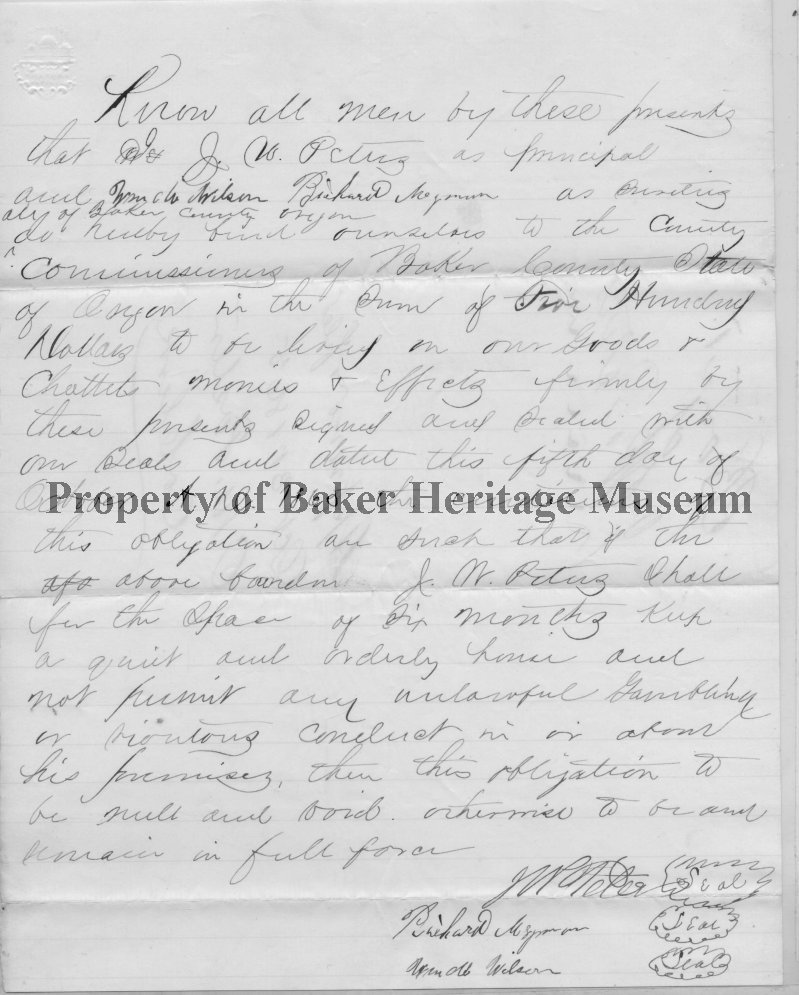 Know all men by these presents
that J. W. Peters as principal
and Wilson Richard as sureties
all of Baker County Oregon
do hereby bind ourselves to the County
Commissioners of Baker County State
of Oregon in the Sum of Five Hundred
Dollars to be levied on our Goods &
Chattels monies & Effects firmly by
these presents signed and sealed with
our seals and dated this fifth day of
October A D
Property of Baker Heritage Museum
this obligation are such that if the
above bounden J. W. Peters Shall
for the Space of Six months Keep
a quiet and orderly house and
not permit any unlawful Gambling
or riotous conduct in or about
his premises, then this obligation to
be null and void. otherwise to be and
remain in full force
J W Peters Seal
Richard Seal
Wilson Seal